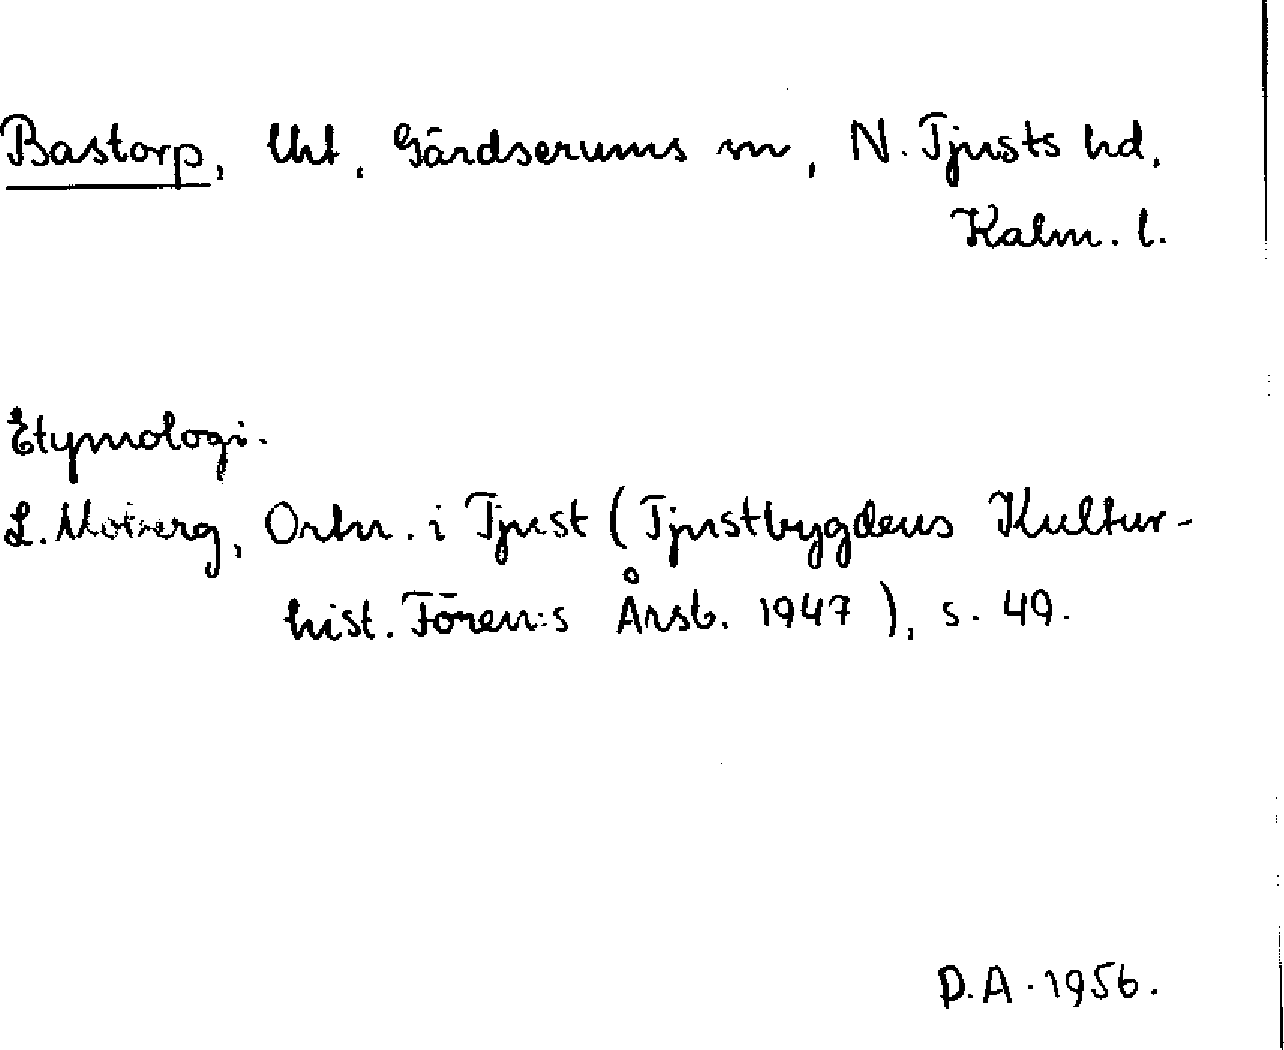 Bastorp, Uht, Gärdserums sn, N. Tjusts hd,
Kalm. l.
Etymologi.
L. Moberg, Ortn. i Tjust (Tjustbygdens Kultur-
hist. Fören:s Årsb. 1947), s. 49.
D.A. 1956.